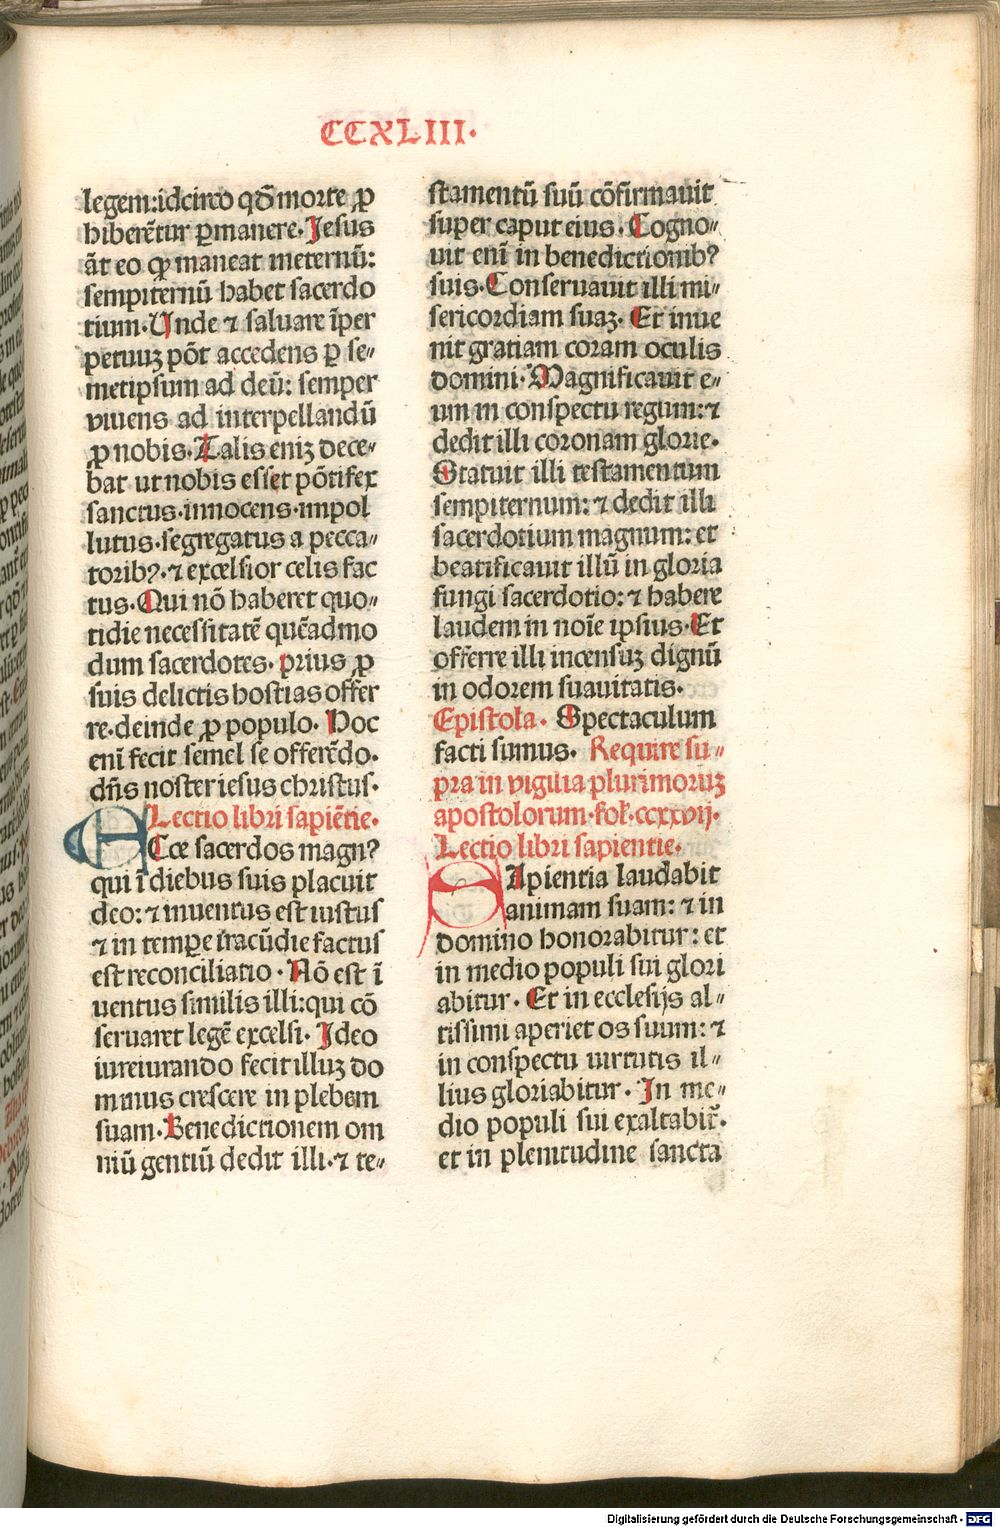 CCXLIII.
legem:idcirco qđ morte ꝓ
hiberẽtur ꝑmanere. Jesus
ãt eo ꝙ maneat ineternũ:
sempiternũ habet sacerdo
tium. Unde ⁊ saluare ĩper
petuuꝫ põt accedens ꝑ se⸗
metipsum ad deũ: semper
viuens ad interpellandũ
ꝓ nobis. Talis eniꝫ dece⸗
bat ut nobis esset põtifex
sanctus.innocens.impol
lutus.segregatus a pecca⸗
torib?.⁊ excelsior celis fac
tus. Qui nõ haberet quo⸗
tidie necessitatẽ quẽadmo
dum sacerdotes. prius ꝓ
suis delictis hostias offer
re.deinde ꝓ populo. Hoc
enĩ fecit semel se offerẽdo.
dñs noster iesus christus.
Lectio libri sapiẽtie.
ECce sacerdos magn?
qui ĩ diebus suis placuit
deo: ⁊ inuentus est iustus
⁊ in temꝑe iracũdie factus
est reconciliatio. Nõ est ĩ
uentus similis illi:qui cõ
seruaret legẽ excelsi. Ideo
iureiurando fecit illuꝫ do
minus crescere in plebem
suam. Benedictionem om
niũ gentiũ dedit illi.⁊ te⸗
stamentũ suũ cõfirmauit
super caput eius. Cogno⸗
uit enĩ in benedictionib?
suis. Conseruauit illi mi⸗
sericordiam suaꝫ. Et inue
nit gratiam coram oculis
domini. Magnificauit e⸗
um in conspectu regum: ⁊
dedit illi coronam glorie.
Statuit illi testamentum
sempiternum: ⁊ dedit illi
sacerdotium magnum: et
beatificauit illũ in gloria
fungi sacerdotio: ⁊ habere
laudem in noĩe ipsius. Et
offerre illi incensuꝫ dignũ
in odorem suauitatis.
Epistola. Spectaculum
facti sumus. Require su⸗
pra in vigilia plurimoruꝫ
apostolorum.fol.ccxxvij.
Lectio libri sapientie.
SApientia laudabit
animam suam: ⁊ in
domino honorabitur: et
in medio populi sui glori
abitur. Et in ecclesijs al⸗
tissimi aperiet os suum: ⁊
in conspectu uirtutis il⸗
lius gloriabitur. In me⸗
dio populi sui exaltabit̃.
et in plenitudine sancta
Digitalisierung gefördert durch die Deutsche Forschungsgemeinschaft - DFG